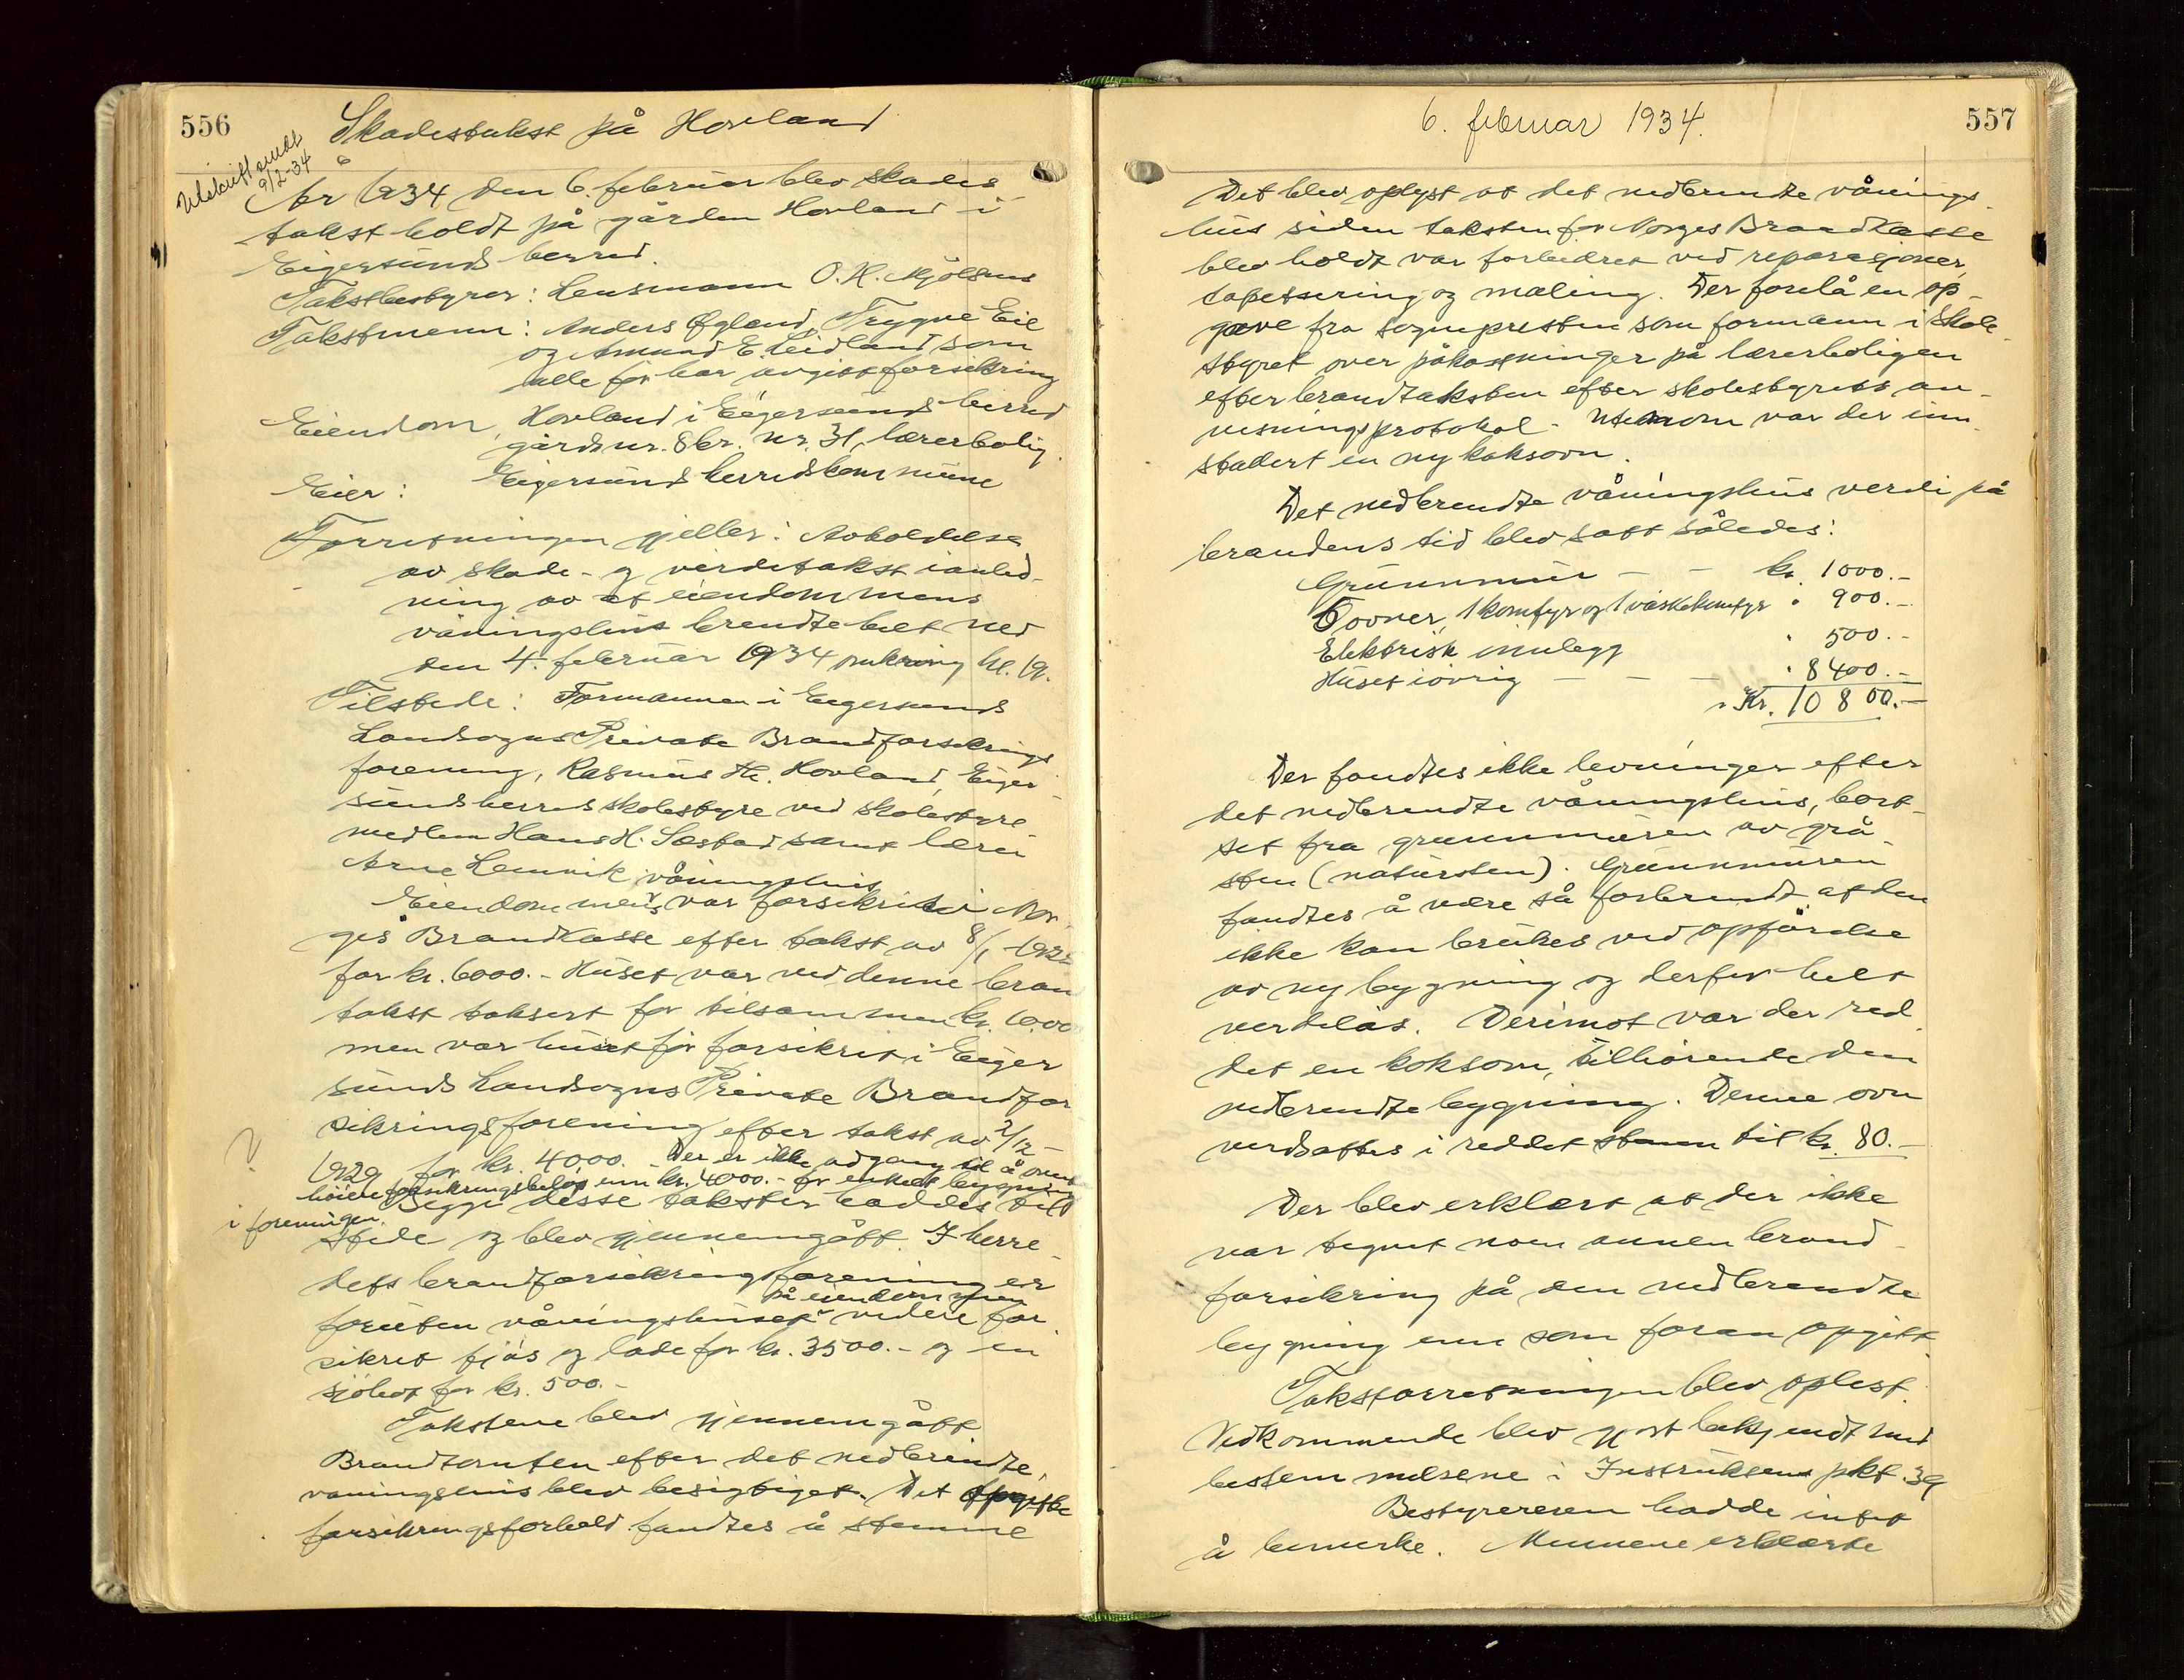 556
Skadestakst på Hovland
Utskrift sendt
9/2-34
År 1934 den 6. februar blev skades
takst holdt på gården Hovland i
Eigersund herred.
Takstbestyrer: Lensmann O. H. Mjölsnes
Takstmenn: Anders Øgland, Trygve Eie
og Amund E. Leidland som
alle før har avgitt forsikring
Eiendom, Hovland i Eigersunds herred
gårdsnr. 8 br. nr. 31, lærerbolig.
Eier: Eigersund herredskommune
Forretningen gjeller: Avholdelse
av skade- og verditakst i anled-
ning av at eiendommens
våningshus brendte helt ned
den 4. februar 1934 omkring kl. 19.
Tilstede: Formannen i Eigersunds
Landsogns Private Brandforsikrings
forening, Rasmus Th. Hovland, Eiger-
sunds herreds skolestyre ved skolestyre-
medlem Hans H. Sæstad samt lærer
Arne Lenvik
våningshus
Eiendommens var forsikret i Nor-
ges Brandkasse efter takst av 8/1 1922
for kr. 6000.- Huset var ved denne bran
takst taksert for tilsammen kr. 10.000
men var huset før forsikret i Eiger
sunds Landsogns Private Brandfor
sikringsforening efter takst av 2/12-
1929 for kr. 4000. Der er ikke adgang til å
høiere forsikringsbeløp enn kr. 4000.- for enkelt bygning
i foreningen.
Begge disse takster haddes til
stede og blev gjennemgått. I herre-
dets brandforsikringsforening er
på eiendommen
foruten våningshuset videre for-
sikret fjøs og løde for kr. 3500.- og en
sjøhus for kr. 500.-
Takstene blev gjennemgått
Brandtomten efter det nedbrendte,
våningshus blev besigtiget. Det opgitte
forsikringsforhold fandtes å stemme
6. februar 1934.
557
Det blev oplyst at det nedbrendte vånings-
hus siden taksten for Norges Brandkasse
blev holdt var forbedret ved reparasjoner,
tapetsering og maling. Der forelå en op-
gave fra sognepresten som formann i skole-
styret over påkostninger på lærerboligen
efter brandtaksten efter skolestyrets an-
visningsprotokol. Utenom var der inn-
stallert en ny koksovn.
Det nedbrendte våningshus verdi på
brandens tid blev satt således:
Grunnmur – – kr. 1000.-
6 ovner, 1 komfyr og 1 vaskekomfyr " 900.-
Elektrisk innlegg " 500.-
Huset iøvrig – – – " 8400.-
Kr. 10 800.-
Der fandtes ikke levninger efter
det nedbrendte våningshus, bort-
set fra grunnmuren av grå-
sten (natursten). Grunnmuren
fandtes å være så forbrendt at den
ikke kan brukes ved opførelse
av ny bygning og derfor helt
verdiløs. Derimot var der red-
det en koksovn, tilhørende den
nedbrendte bygning. Denne ovn
verdsattes i reddet stann til kr. 80.-
Der blev erklært at der ikke
var tegnet noen annen brand-
forsikring på den nedbrendte
bygning enn som foran opgitt.
Takstforretningen blev oplest.
Vedkommende blev gjort bekjendt med
bestemmelsene i Instruksens pkt. 39
Bestyreren hadde intet
å bemerke. Mennene erklærte